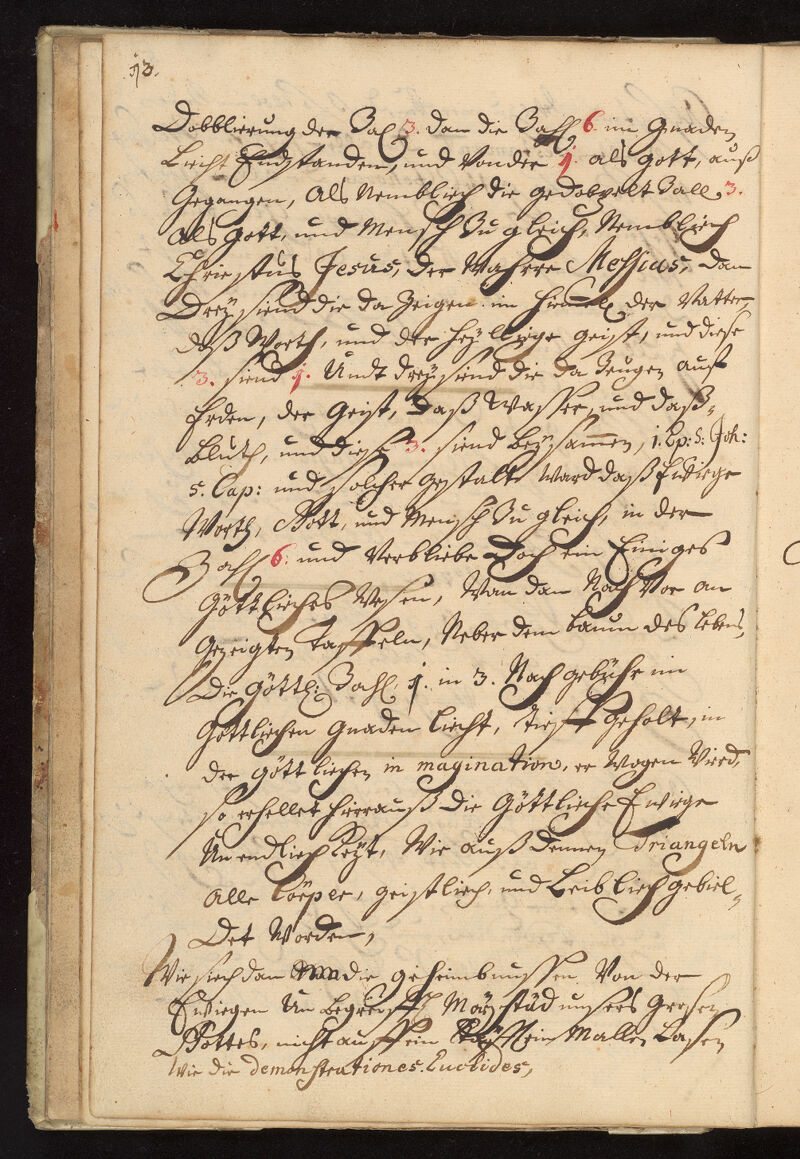 12.
Dobblierung der Zal 3. dan die Zahl 6 im Gnaden
Liecht Endstanden, und von der 1. als gott, auß
Gegangen, Als Nemblich die gedoppelt Zall 3.
Als gott, und Mensch Zu gleich, Nemblich
Christus Jesus, der Wahre Messias, dan
Drey siend die da Zeigen im Himel der Vatter,
daß Worth, und der heyllige geist, und diese
3. siend 1. Undt drey siend die da Zeugen auf
Erden, der Geist, daß Wasser, und daß
Bluth, und diese 3. siend beysamen, i. Ep: S: Joh:
5. Cap: und solcher gestalt ward daß Ewige
Worth, Gott, und Mensch Zu gleich, in der
Zahl 6. und Verbliebe Doch ein Einiges
Göttliches Wesen, Wan dan Nach Vor an
gezeigten Taffeln, Neber dem baum des lebens,
Die Göttl: Zahl 1. in 3. Nach gebühr im
Göttlichen Gnaden Liecht, Tieff geholt, in
der Göttlichen in magination, er Wogen Wird,
so erhellet hierauß die Göttliche Ewige
Unendlichkeyt, Wie auß dennen Triangeln
Alle Cörper, geistlich, und Leiblich gebiel-
Det Worden,
Wie siech dan die geheimbnussen Von der
Ewigen Un begreiffl Mayestäd unsers Grosen
Gottes, nicht auff ein Mallen Lasen
Wie die demonstrationes. Euclides,